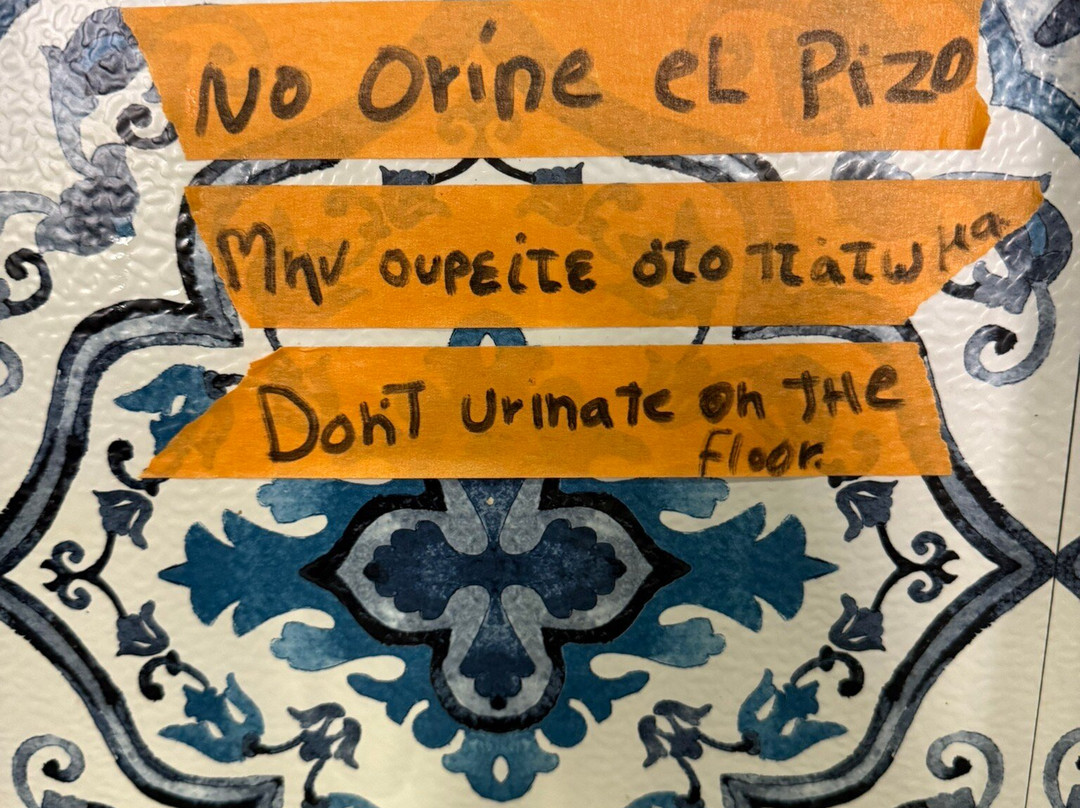 No Orine eL Pizo
Μην ουρείτε στο πάτωμα.
Don't urinate on THe
floor.